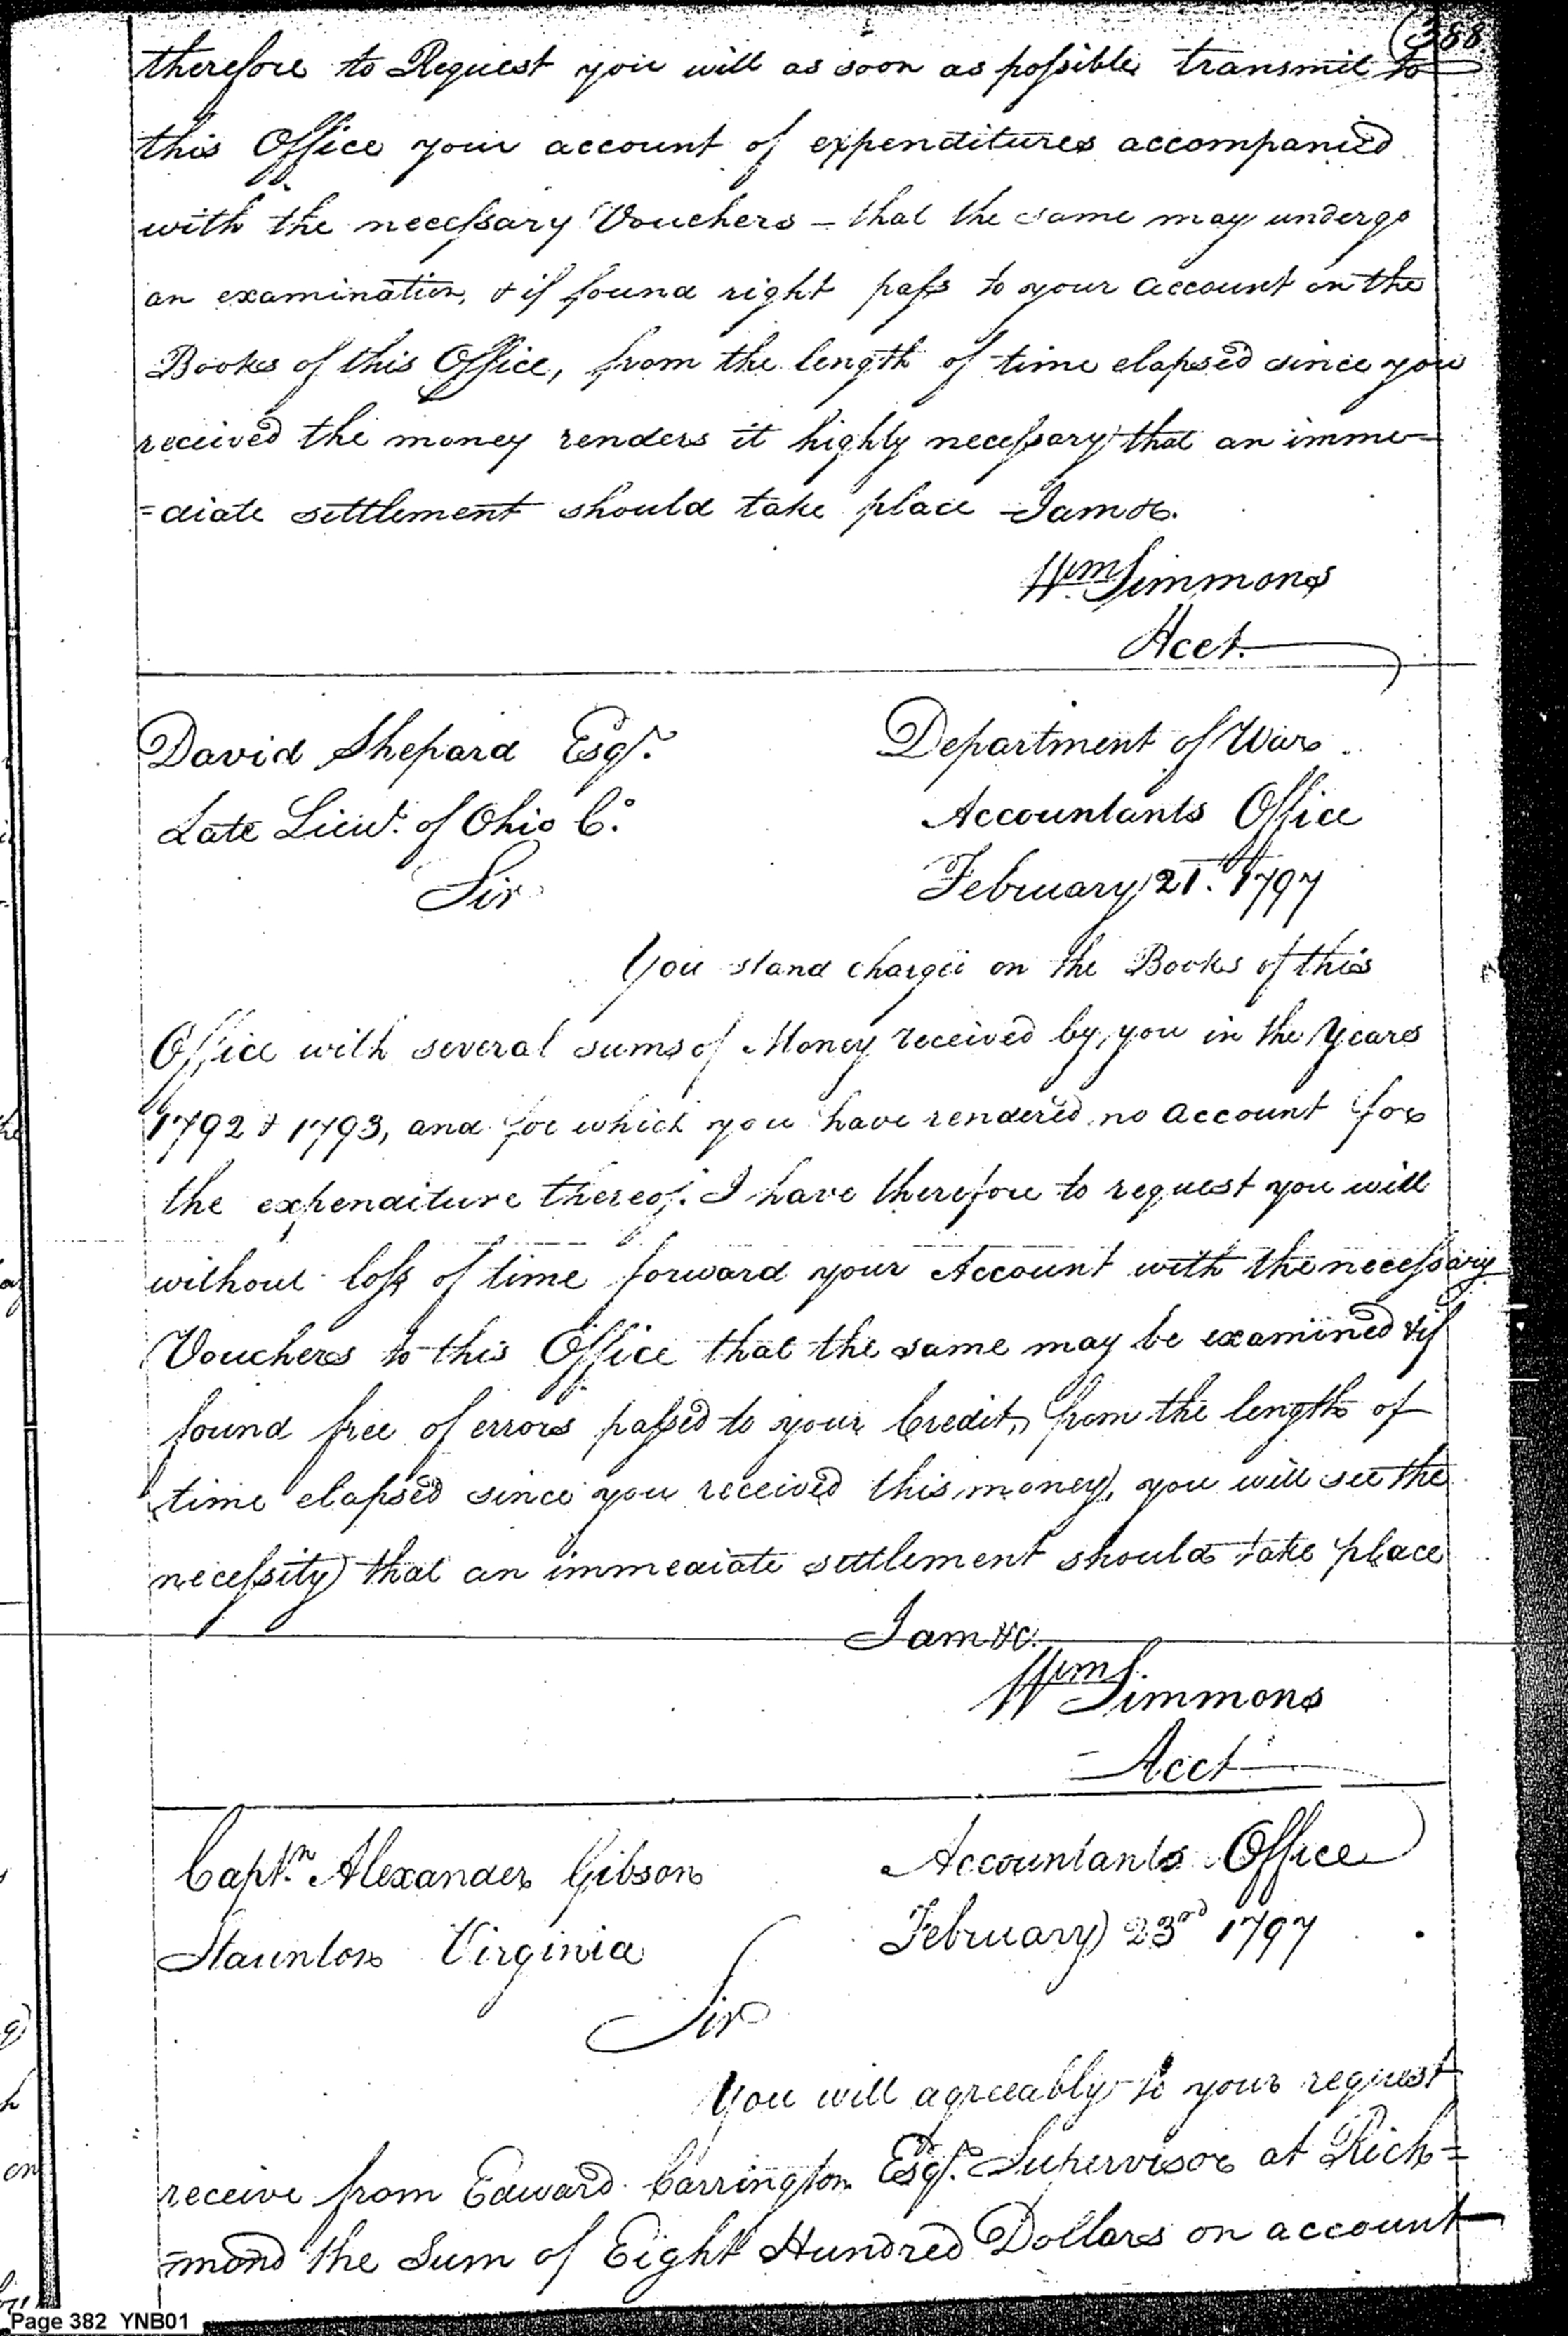 (388
therefore to Request you will as soon as possible transmit to
this Office your account of expenditures accompanied
with the necessary Vouchers – that the same may undergo
an examination, & if found right pass to your account on the
Books of this Office, from the length of time elapsed since you
received the money renders it highly necessary that an imme=
=diate settlement should take place I am &c.
Wm Simmons
Acct.
David Shepard Esqr.
Department of War
Late Lieut. of Ohio Co.
Accountants Office
Sir
February 21.st 1797
You stand charged on the Books of this
Office with several sums of Money received by you in the Years
1792 & 1793, and for which you have rendered no account for
the expenditure thereof. I have therefore to request you will
without loss of time forward your Account with the necessary
Vouchers to this Office that the same may be examined & if
found free of errors passed to your Credit, from the length of
time elapsed since you received this money, you will see the
necessity that an immediate settlement should take place
I am &c.
Wm Simmons
Acct
Captn. Alexander Gibson
Accountants Office
Staunton Virginia
February 23rd 1797
Sir
You will agreeably to your request
receive from Edward Carrington Esqr. Supervisor at Rich=
=mond the Sum of Eight Hundred Dollars on account
Page 382 YNB01